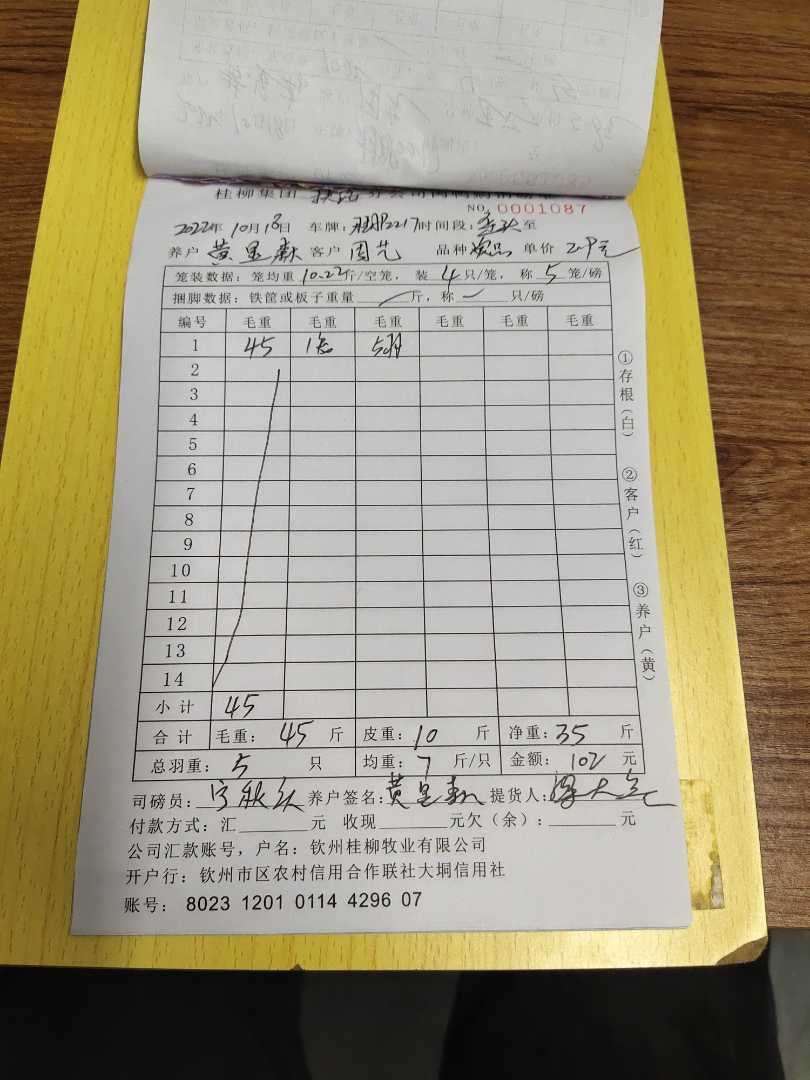 桂柳集团 分公司
NO. 0001087
2022年10月18日 车牌: 2217 时间段: 至
养户 黄显 客户 周先 品种 次品 单价 2.9元
笼装数据: 笼均重10.22斤/空笼, 装4只/笼, 称5笼/磅
捆脚数据: 铁筐或板子重量 斤, 称 只/磅
编号 毛重 毛重 毛重 毛重 毛重 毛重
1 45 1笼 5羽
2
3
4
5
6
7
8
9
10
11
12
13
14
小计 45
合计 毛重: 45 斤 皮重: 10 斤 净重: 35 斤
总羽重: 5 只 均重: 7 斤/只 金额: 102 元
司磅员: 养户签名: 黄显 提货人:
付款方式: 汇 元 收现 元欠(余): 元
公司汇款账号, 户名: 钦州桂柳牧业有限公司
开户行: 钦州市区农村信用合作联社大垌信用社
账号: 8023 1201 0114 4296 07
①存根(白)
②客户(红)
③养户(黄)